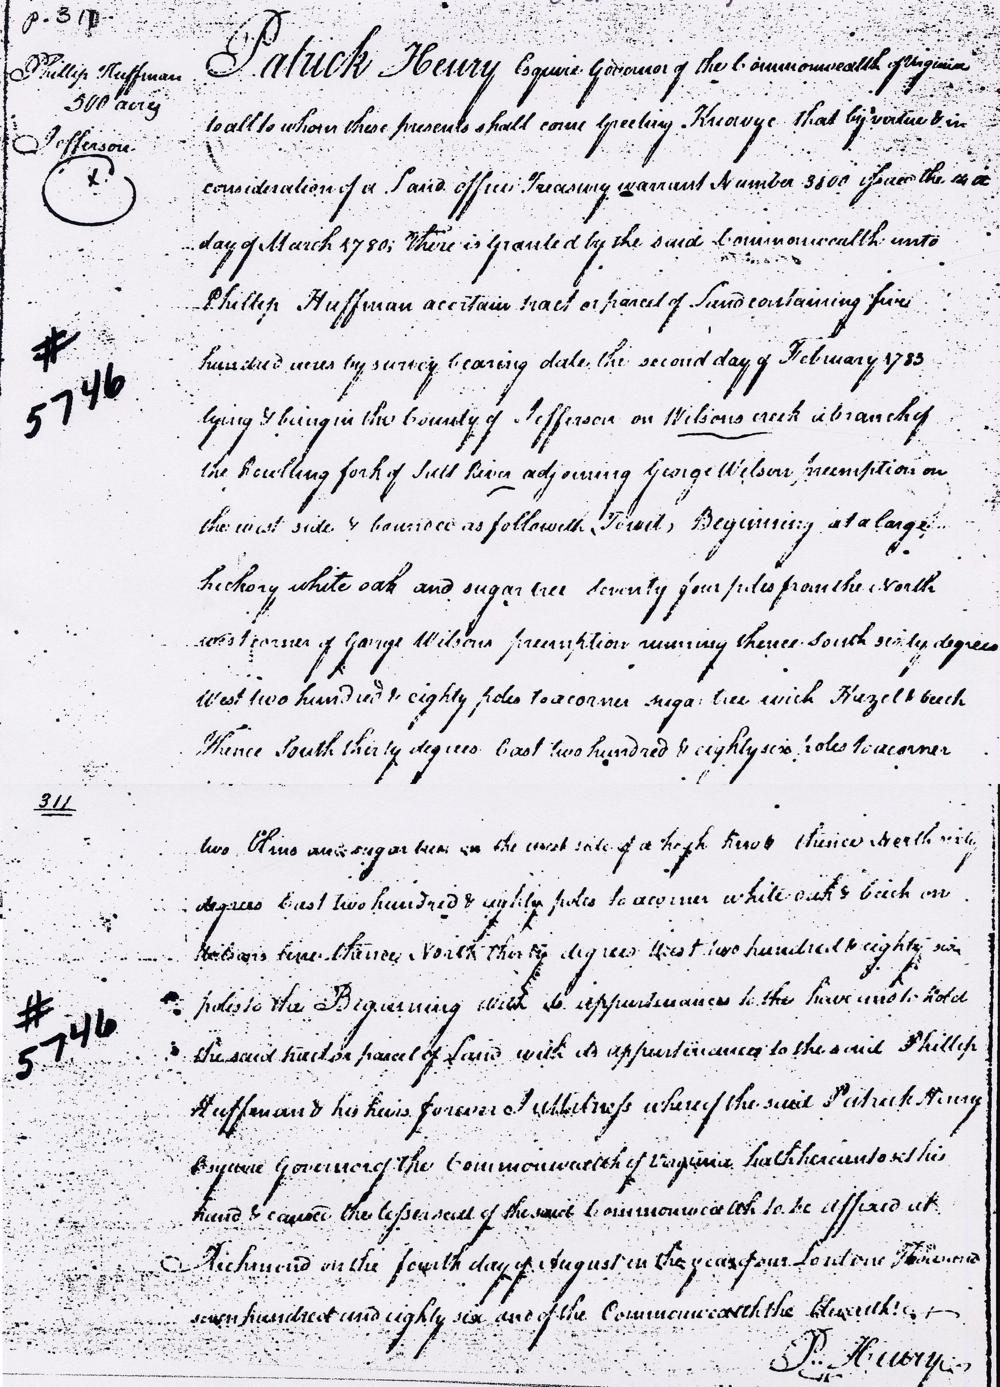 p. 311
Phillip Huffman
500 acres
Jefferson
x
Patrick Henry Esquire Governor of the Commonwealth of Virginia
to all to whom these presents shall come Greeting Know ye that by virtue & in
consideration of a Land office Treasury warrant Number 3800 issued the
day of March 1780; There is Granted by the said Commonwealth unto
Phillip Huffman a certain tract or parcel of Land containing five
hundred acres by survey bearing date the second day of February 1783
lying & being in the County of Jefferson on Wilsons creek a branch of
the Rowling fork of Salt River adjoining George Wilson Preemption on
the west side & bounded as followeth (Towit) Beginning at a large
hickory white oak and sugar tree seventy four poles from the North
west corner of George Wilsons preemption running thence South sixty degrees
West two hundred & eighty poles to a corner sugar tree with Hazel & beech
Thence South thirty degrees East two hundred & eighty six poles to a corner
#
5746
311
two Elms and sugar tree on the west side of a high knob thence North sixty
degrees East two hundred & eighty poles to a corner white oak & beech on
Wilsons line thence North thirty degrees West two hundred & eighty six
poles to the Beginning with its appurtenances to the have and to hold
the said tract or parcel of Land with its appurtinances to the said Phillip
Huffman & his heirs forever In Witness whereof the said Patrick Henry
Esquire Governor of the Commonwealth of Virginia hath hereunto set his
hand & caused the lesser seal of the said Commonwealth to be affixed at
Richmond on the fourth day of August in the year of our Lord one Thousand
seven hundred and eighty six and of the Commonwealth the Eleventh
P. Henry
#
5746